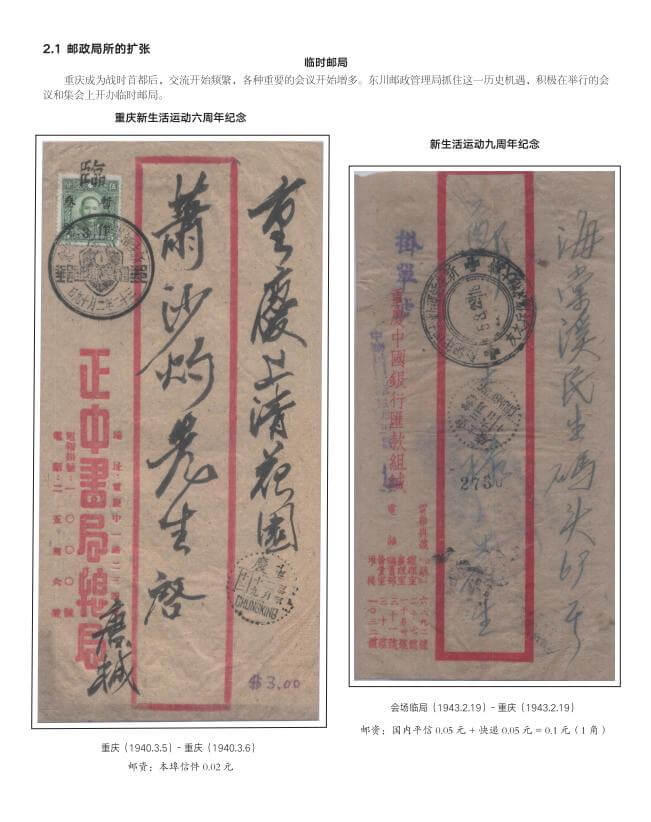 2.1 邮政局所的扩张
临时邮局
重庆成为战时首都后，交流开始频繁，各种重要的会议开始增多。东川邮政管理局抓住这一历史机遇，积极在举行的会
议和集会上开办临时邮局。
重庆新生活运动六周年纪念
新生活运动九周年纪念
臨
重慶上清花園
蕭沙灼先生 啓
正中書局總局
唐緘
慶
CHUNGKING
$3.00
海棠溪民生碼头67号
掛單
重慶中國銀行匯款組緘
2730
会场临局（1943.2.19）- 重庆（1943.2.19）
邮资：国内平信 0.05 元 + 快递 0.05 元 = 0.1 元（1 角）
重庆（1940.3.5）- 重庆（1940.3.6）
邮资：本埠信件 0.02 元